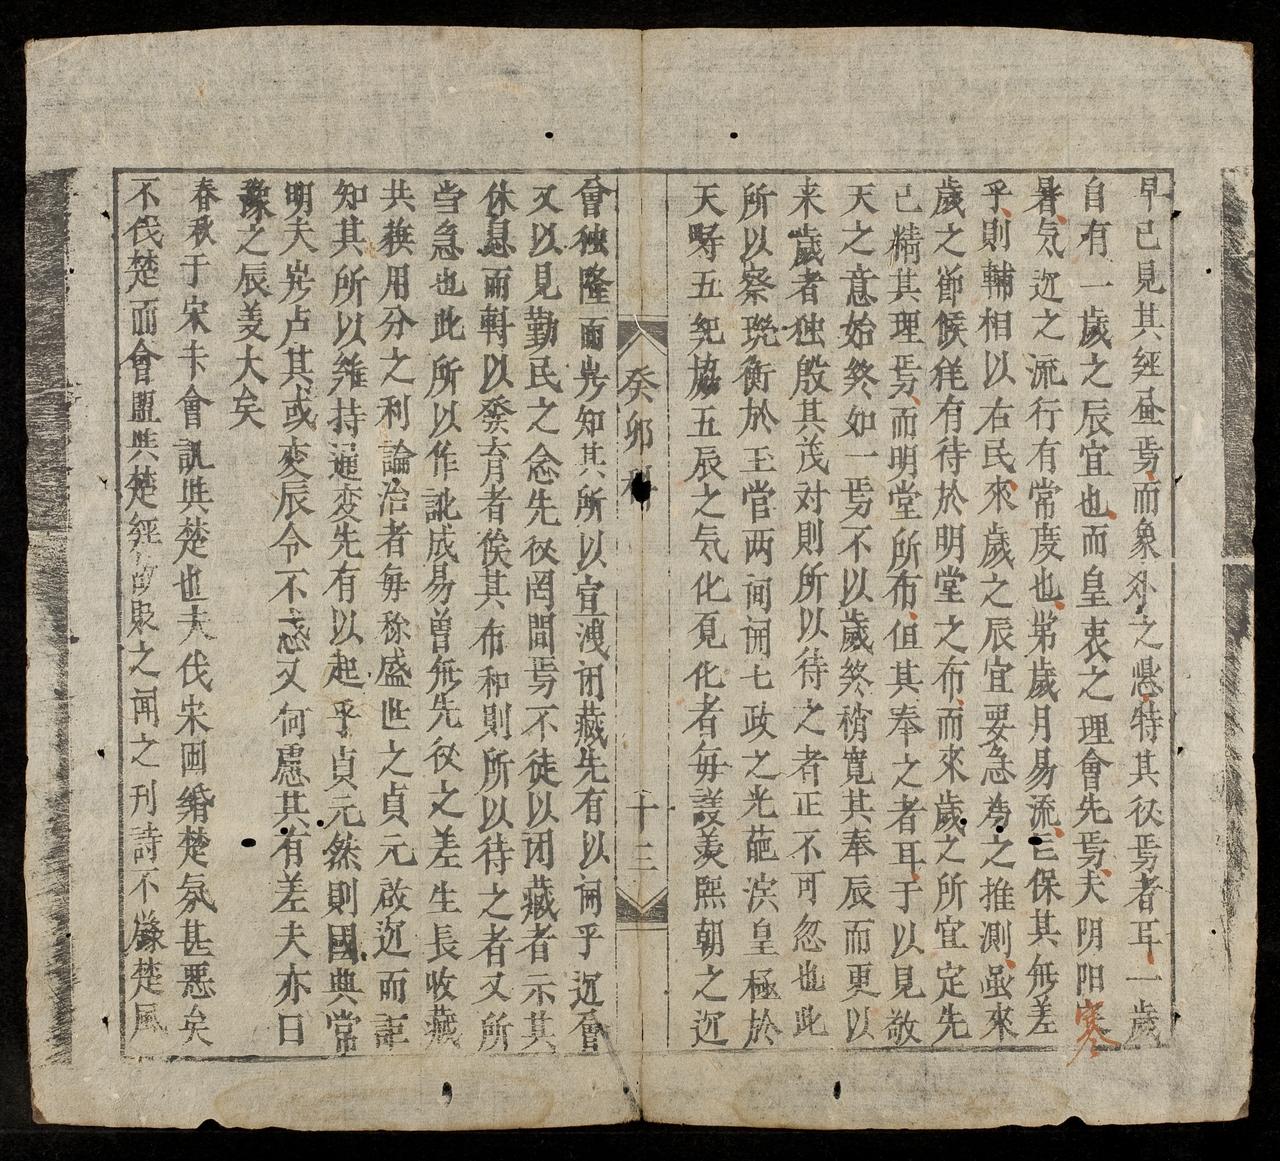 早已見其經畫焉而象外之懸特其役焉者耳一歲
自有一歲之辰宜也而皇衷之理會先焉夫阴阳寒
暑气迟之流行有常度也第歲月易流三保其無差
乎則輔相以右民來歲之辰宜要急為之推測虽來
歲之節候徍有待於明堂之布而來歲之所宜定先
已精其理焉而明堂所布但其奉之者耳于以見敬
天之意始終如一焉不以歲終稍寬其奉辰而更以
来歲者独殷其茂对則所以待之者正不可忽也此
所以察璣衡於王當两间闹七政之光葩浜皇極於
天野五紀協五辰之气化覔化者毎護羡熙朝之迟
癸卯科
十三
會独隆而岁知其所以宣洩闭藏先有以调乎迟會
又以見勤民之念先役罔間焉不徒以闭藏者示其
休息而斡以發育者俟其布和則所以待之者又所
当急也此所以作訛成易曽無先役之差生長收藏
共襪用分之利論治者毎称盛世之貞元啟迟而詎
知其所以維持運变先有以起乎貞元然則國典常
明夫岁占其或变辰令不忒又何慮其有差夫亦曰
豫之辰羡大矣
春秋于宋卡會訊与楚也夫伐宋围緡楚氛甚悪矣
不伐楚而會盟与楚經故衆之闻之刊詩不發楚風